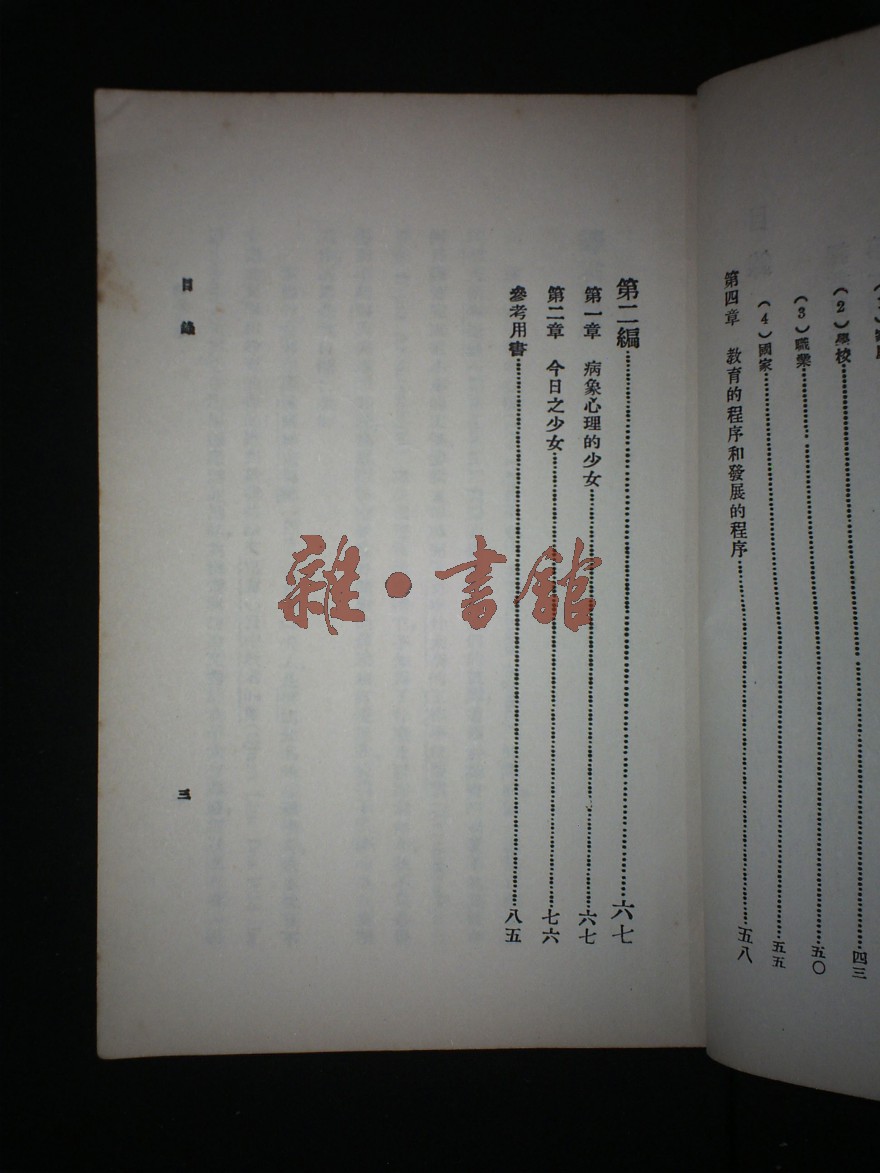 (2)學校……四三
(3)職業……五〇
(4)國家……五五
第四章 教育的程序和發展的程序……五八
第二編……六七
第一章 病象心理的少女……六七
第二章 今日之少女……七六
參考用書……八五
目錄
三
雜·書館